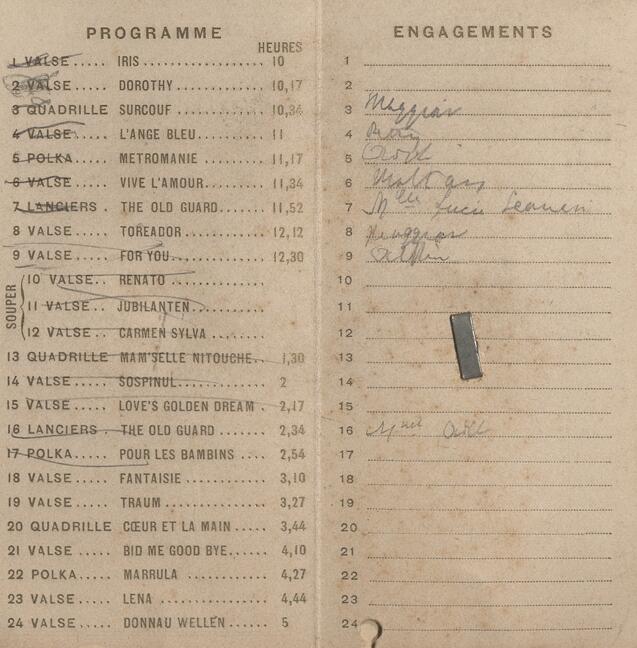 PROGRAMME
HEURES
1 VALSE ..... IRIS .................. 10
2 VALSE ..... DOROTHY ............... 10,17
3 QUADRILLE SURCOUF ............... 10,34
4 VALSE ..... L'ANGE BLEU .......... 11
5 POLKA ..... METROMANIE .......... 11,17
6 VALSE ..... VIVE L'AMOUR ......... 11,34
7 LANCIERS . THE OLD GUARD ....... 11,52
8 VALSE ..... TOREADOR ............. 12,12
9 VALSE ..... FOR YOU ............... 12,30
SOUPER
10 VALSE .. RENATO ..............
11 VALSE .. JUBILANTEN ..........
12 VALSE .. CARMEN SYLVA ........
13 QUADRILLE MAM'SELLE NITOUCHE .. 1,30
14 VALSE ..... SOSPINUL .............. 2
15 VALSE ..... LOVE'S GOLDEN DREAM . 2,17
16 LANCIERS . THE OLD GUARD ....... 2,34
17 POLKA ..... POUR LES BAMBINS .... 2,54
18 VALSE ..... FANTAISIE ............. 3,10
19 VALSE ..... TRAUM ................ 3,27
20 QUADRILLE CŒUR ET LA MAIN ..... 3,44
21 VALSE ..... BID ME GOOD BYE...... 4,10
22 POLKA ..... MARRULA ............ 4,27
23 VALSE ..... LENA ................. 4,44
24 VALSE ..... DONNAU WELLEN ...... 5
ENGAGEMENTS
1
2
3
4
5
6
7 Mlle Lucie
8
9
10
11
12
13
14
15
16
17
18
19
20
21
22
23
24